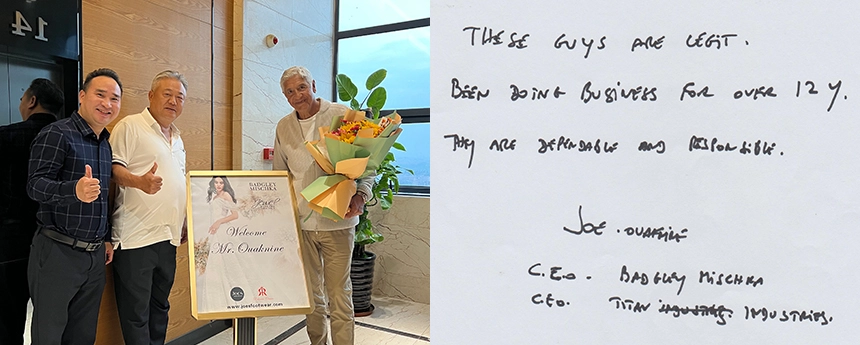 14
BADGLEY
MISCHKA
Welcome
Mr. Ouaknine
JOE'S
www.joesfootwear.com
THESE GUYS ARE LEGIT.
BEEN DOING BUSINESS FOR OVER 12 Y.
THEY ARE DEPENDABLE AND RESPONSIBLE.
JOE. OUAKNINE
C.E.O. BADGLEY MISCHKA
CEO. TITAN INDUSTRIES.